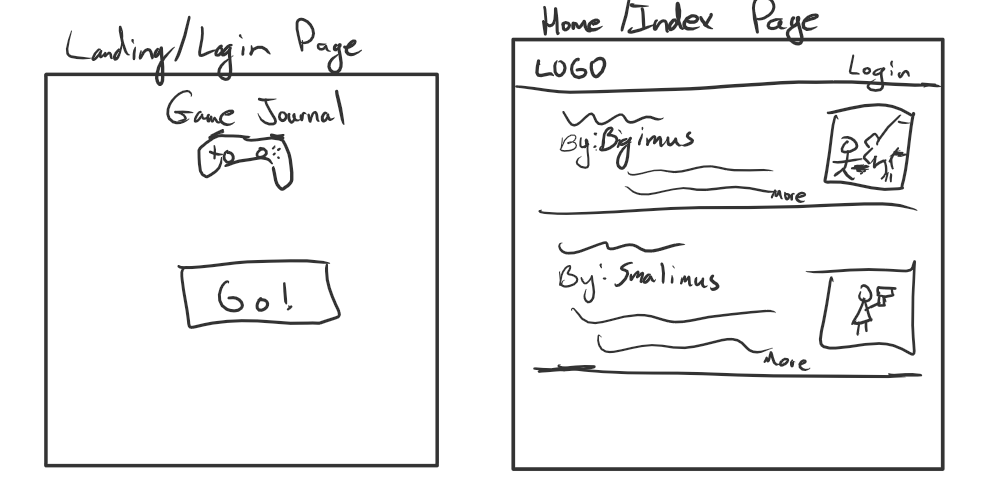 Landing/Login Page
Game Journal
Go!
Home/Index Page
LOGO
Login
By: Bigimus
More
By: Smalimus
More